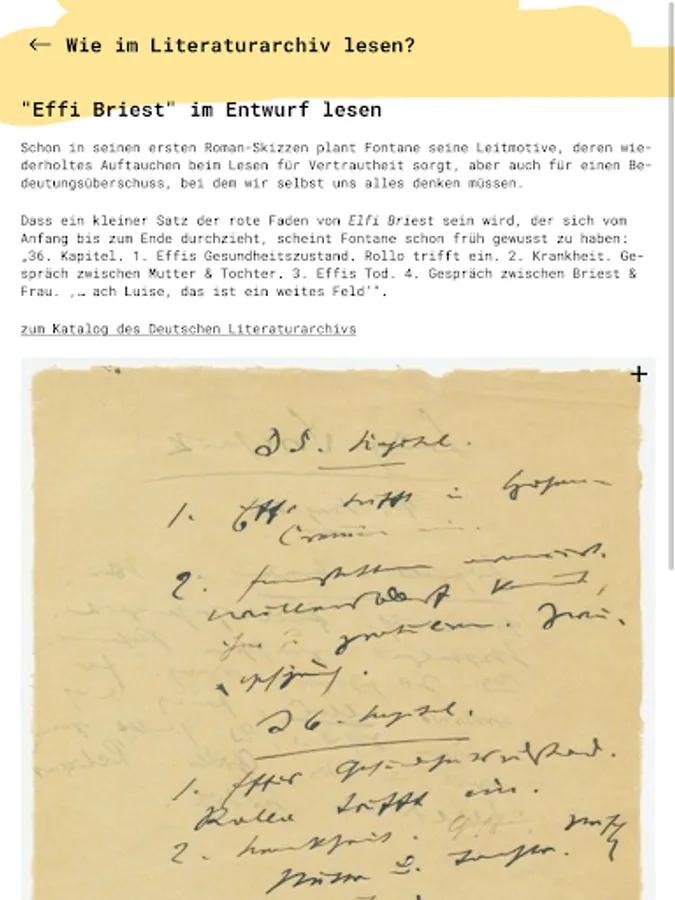 ← Wie im Literaturarchiv lesen?
"Effi Briest" im Entwurf lesen
Schon in seinen ersten Roman-Skizzen plant Fontane seine Leitmotive, deren wie-
derholtes Auftauchen beim Lesen für Vertrautheit sorgt, aber auch für einen Be-
deutungsüberschuss, bei dem wir selbst uns alles denken müssen.
Dass ein kleiner Satz der rote Faden von Elfi Briest sein wird, der sich vom
Anfang bis zum Ende durchzieht, scheint Fontane schon früh gewusst zu haben:
„36. Kapitel. 1. Effis Gesundheitszustand. Rollo trifft ein. 2. Krankheit. Ge-
spräch zwischen Mutter & Tochter. 3. Effis Tod. 4. Gespräch zwischen Briest &
Frau. ‚… ach Luise, das ist ein weites Feld'".
zum Katalog des Deutschen Literaturarchivs
+
35. Kapitel.
1. Effi trifft in Hohen-
Cremmen ein.
2.
36. Kapitel.
1. Effis Gesundheitszustand.
Rollo trifft ein.
2. Krankheit.
Mutter & Tochter.